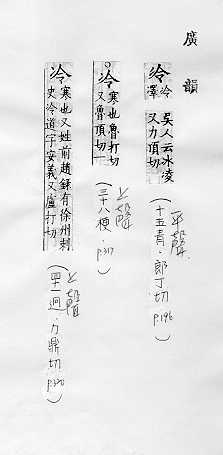 廣韻
冷 冷澤吳人云冰凌又力頂切 (十五青·郎丁切 p.196) 平聲
冷 寒也魯打切又魯頂切 (三十八梗·p.317) 上聲
冷 寒也又姓前趙錄有徐州刺史冷道字安義又盧打切 (四十一迥·力鼎切 p.320) 上聲